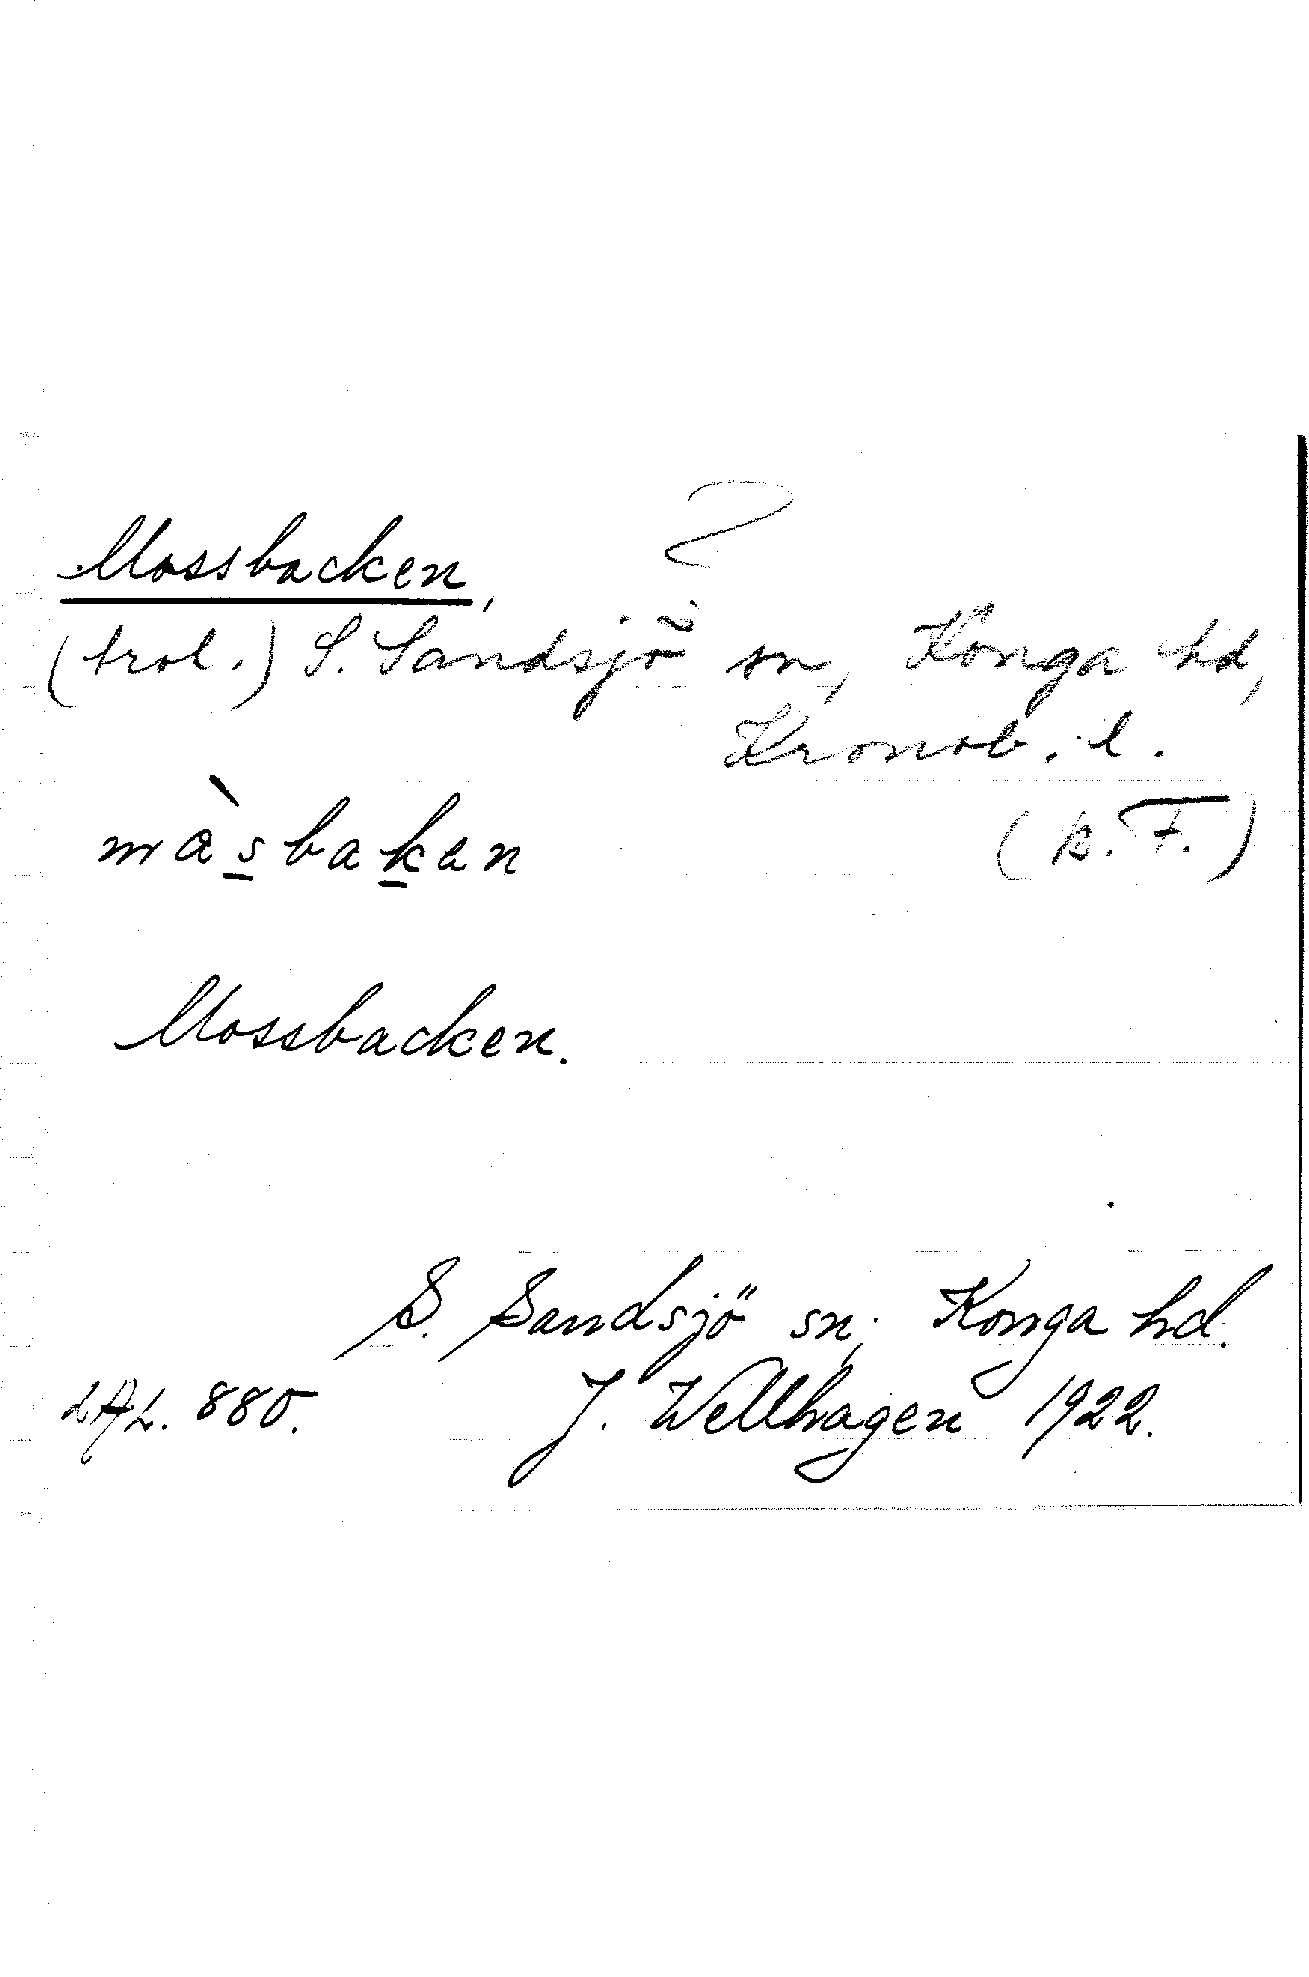 Mossbacken,
(trol.) S. Sandsjö sn, Konga hd,
Kronob. l.
màsbaken
Mossbacken.
S. Sandsjö sn, Konga hd.
LAL. 880. J. Wellhagen 1922.